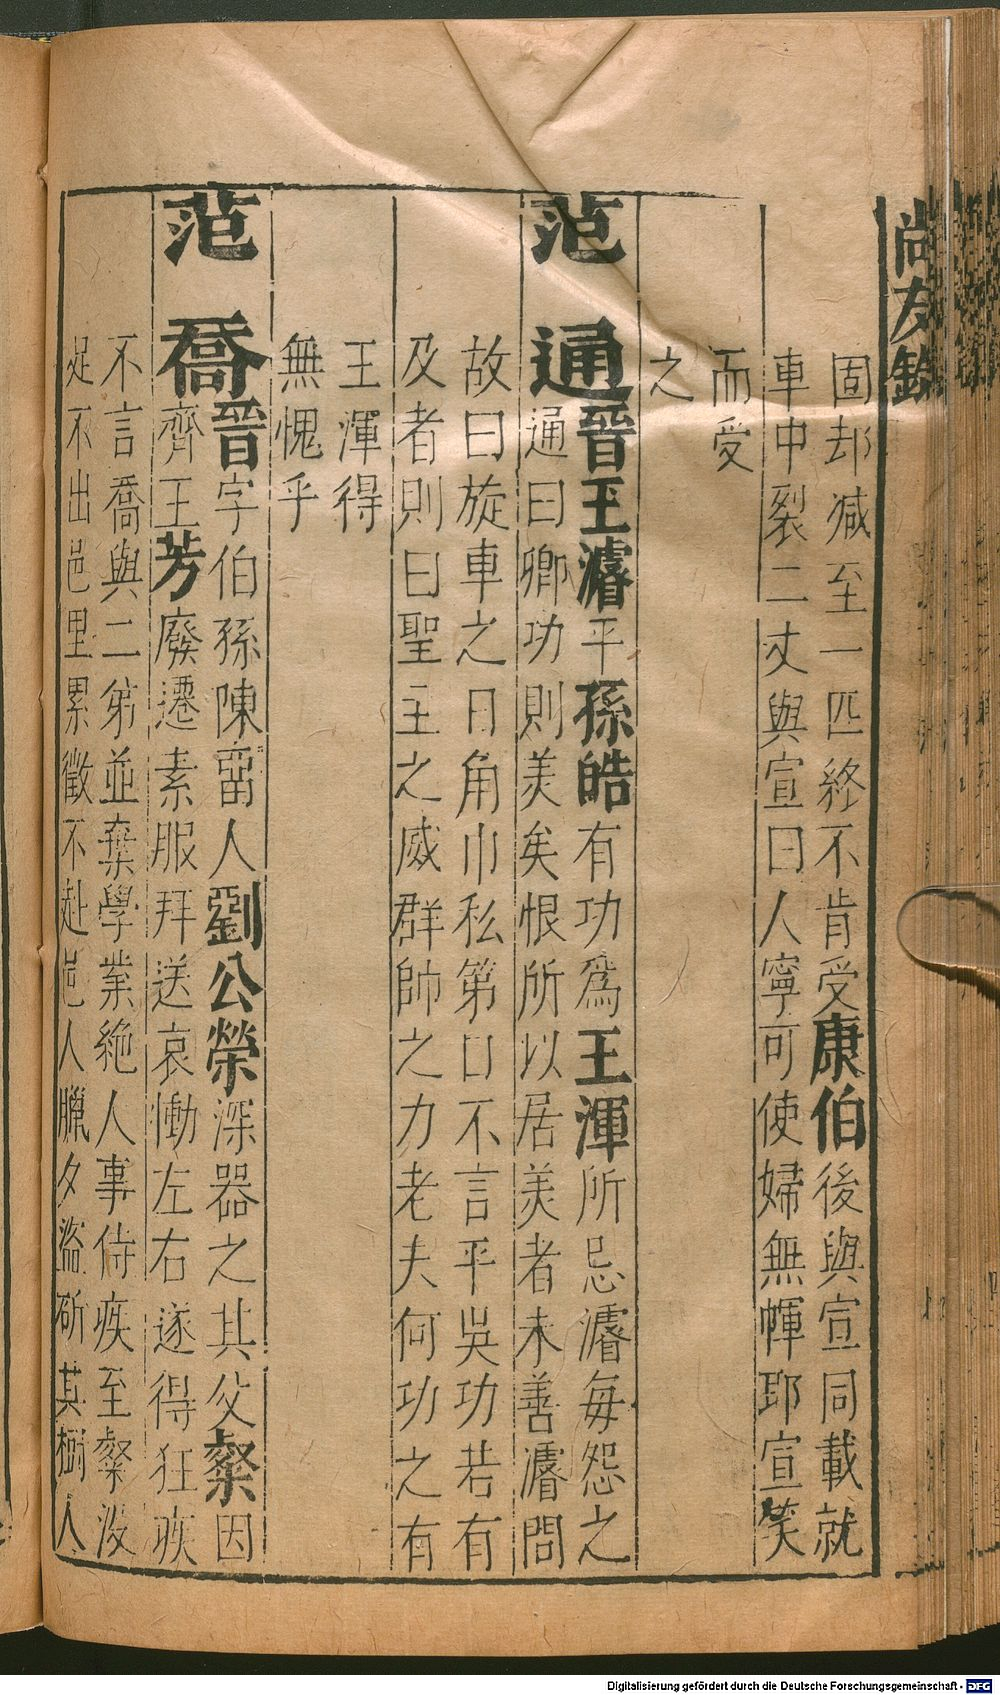 尚友錄
固却減至一匹終不肯受康伯後與宣同載就
車中裂二丈與宣曰人寧可使婦無㡓耶宣笑
而受
之
范通晉王濬平孫皓有功爲王渾所忌濬每怨之
通曰卿功則美矣恨所以居美者未善濬問
故曰旋車之日角巾私第口不言平吳功若有
及者則曰聖主之威群帥之力老夫何功之有
王渾得
無愧乎
范喬晉字伯孫陳畱人劉公榮深器之其父粲因
齊王芳廢遷素服拜送哀慟左右遂得狂疾
不言喬與二弟並棄學業絶人事侍疾至粲没
足不出邑里累徵不赴邑人臘夕盜斫其樹人
Digitalisierung gefördert durch die Deutsche Forschungsgemeinschaft - DFG